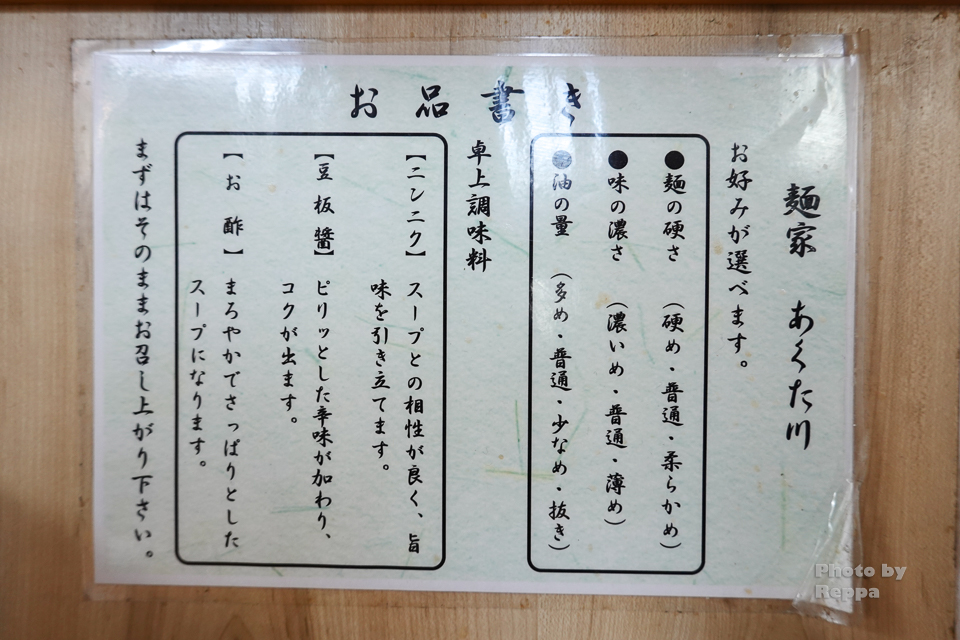 お品書き
麺家 あくた川
お好みが選べます。
●麺の硬さ (硬め・普通・柔らかめ)
●味の濃さ (濃いめ・普通・薄め)
●油の量 (多め・普通・少なめ・抜き)
卓上調味料
【ニンニク】 スープとの相性が良く、旨
味を引き立てます。
【豆板醤】 ピリッとした辛味が加わり、
コクが出ます。
【お酢】 まろやかでさっぱりとした
スープになります。
まずはそのままお召し上がり下さい。
Photo by
Reppa